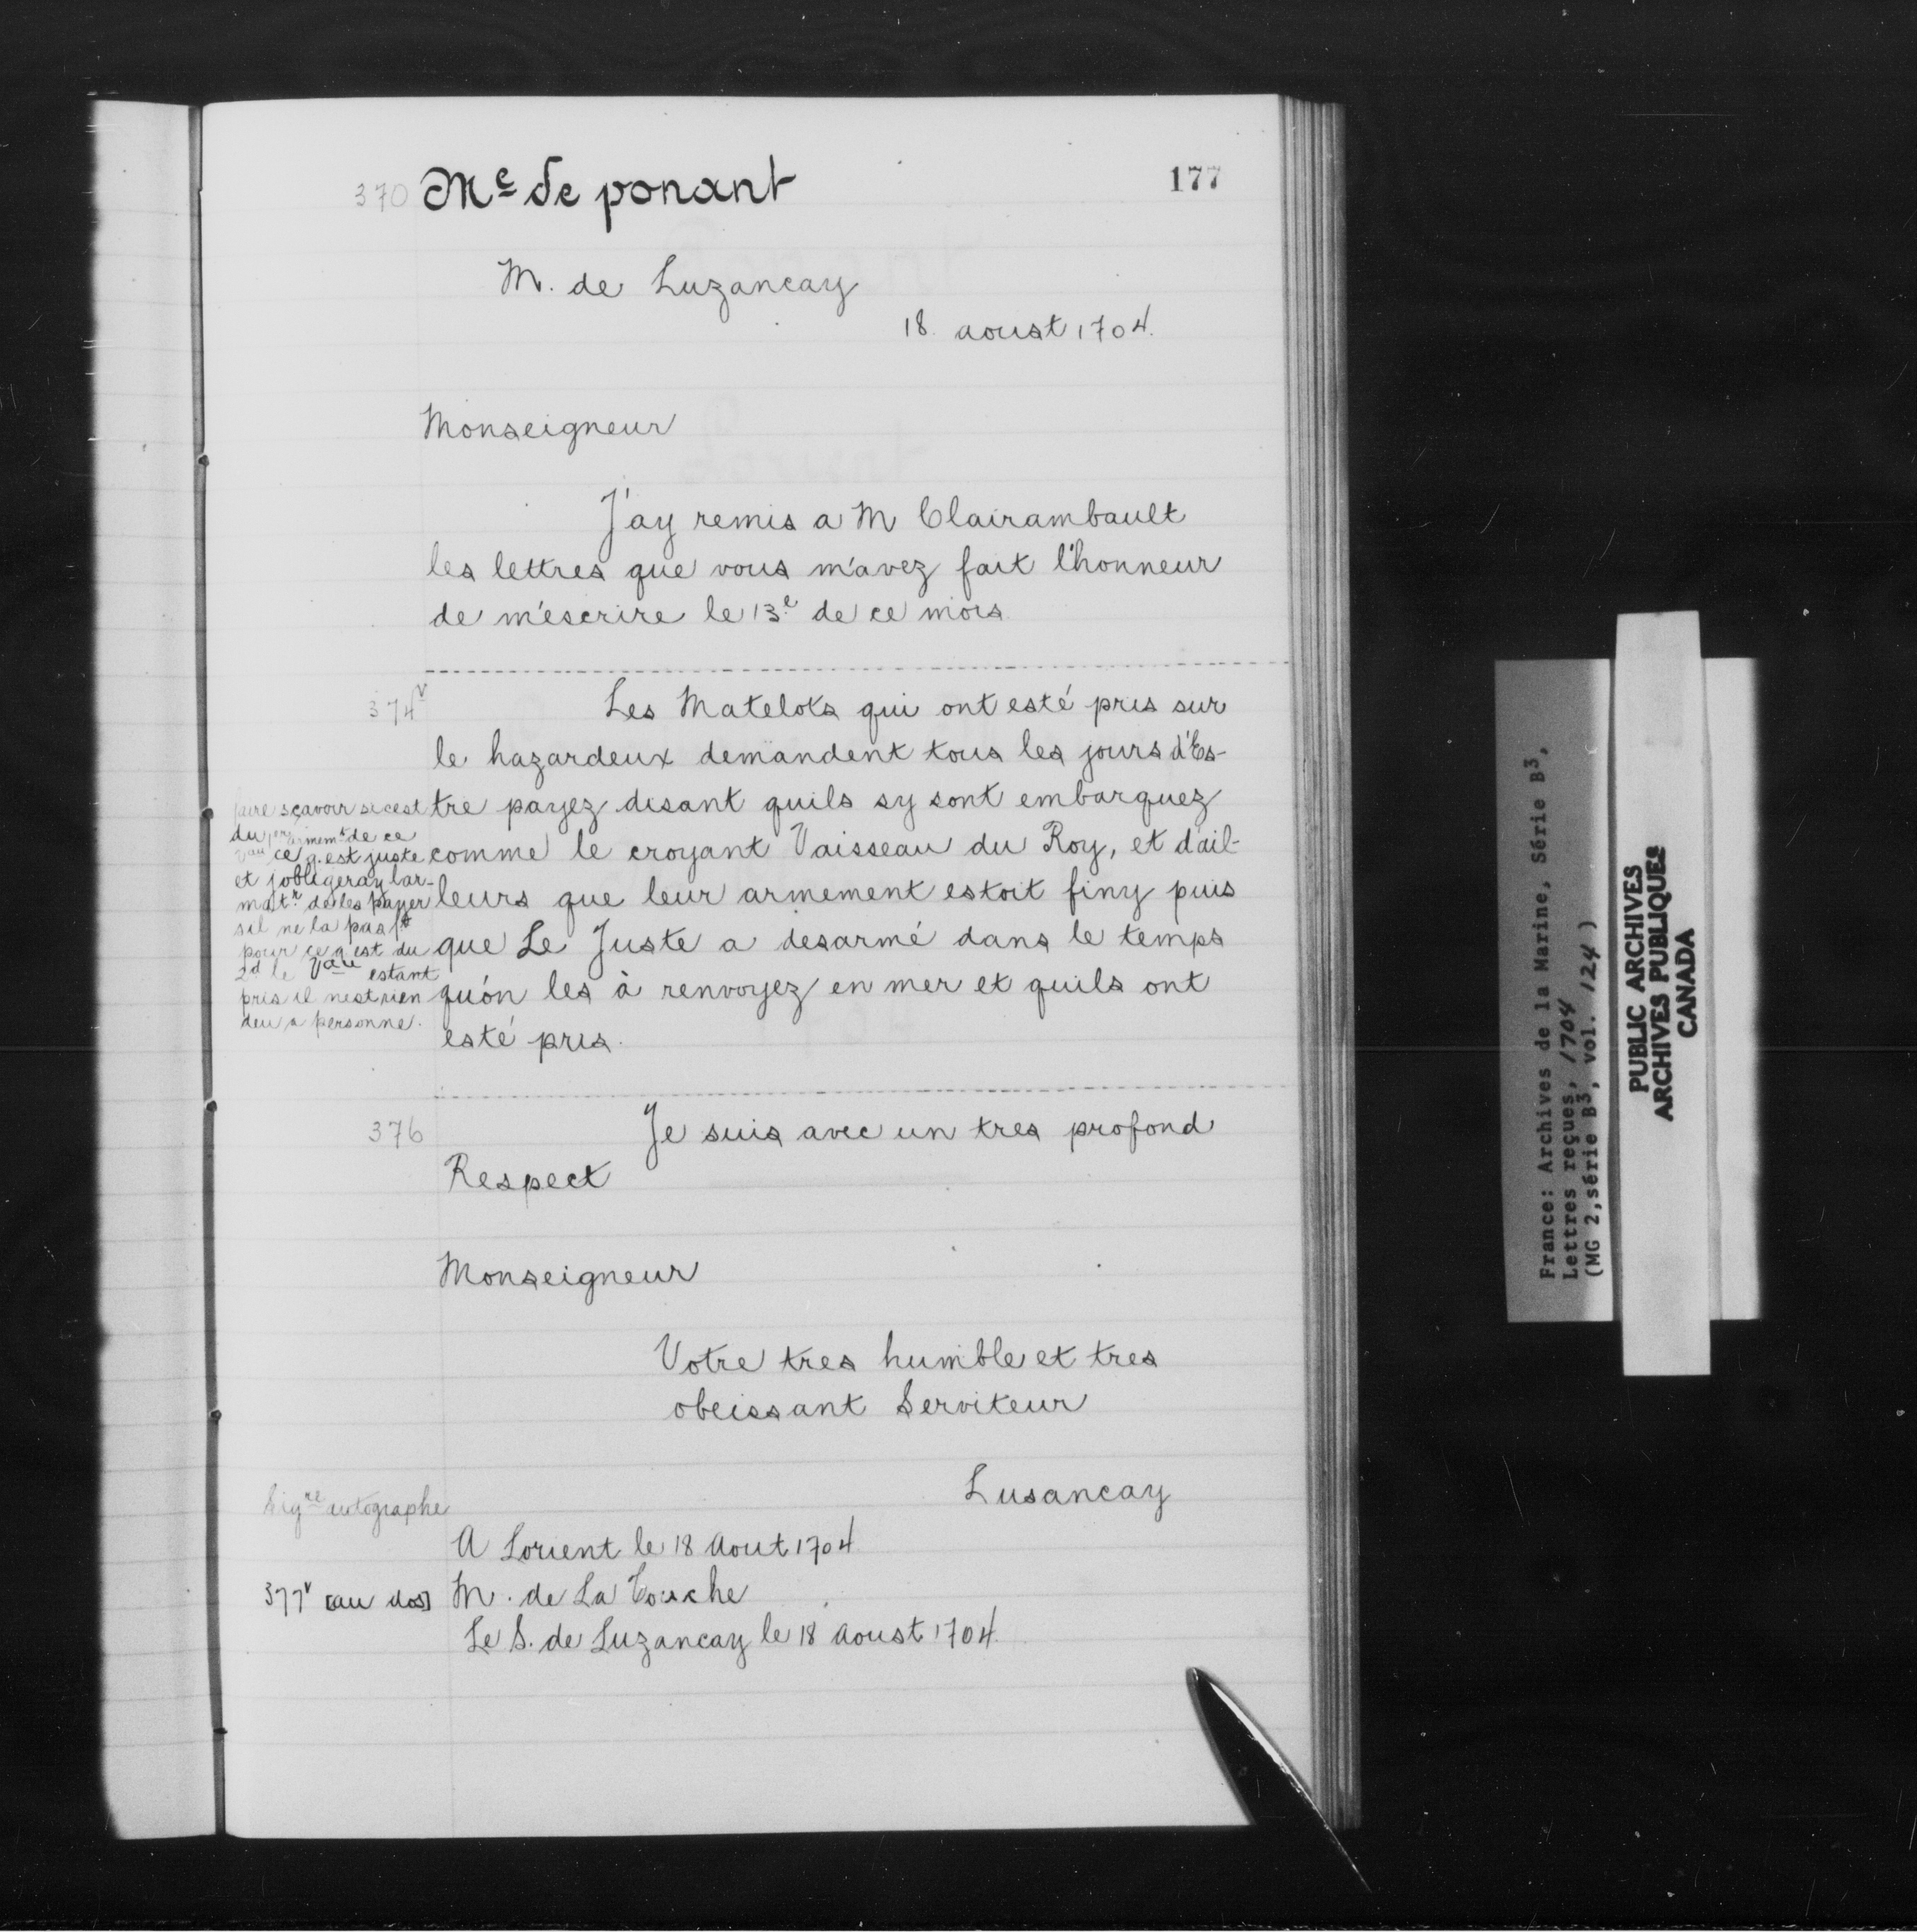 177
370 Me de ponant
M. de Luzancay
18 aoust 1704.
Monseigneur
J'ay remis a M Clairambault
les lettres que vous m'avez fait l'honneur
de m'escrire le 13e de ce mois
374v Les Matelots qui ont esté pris sur
le hazardeux demandent tous les jours d'Es-
tre payez disant quils sy sont embarquez
comme le croyant Vaisseau du Roy, et d'ail-
leurs que leur armement estoit finy puis
que Le Juste a desarmé dans le temps
qu'on les à renvoyez en mer et quils ont
esté pris.
faire sçavoir si cest
du 1er armemt de ce
Vau ce q. est juste
et jobligeray lar-
matr. de les payer
sil ne la pas ft
pour ce q'est du
2d le Vau estant
pris il nest rien
deu a personne.
376 Je suis avec un tres profond
Respect
Monseigneur
Votre tres humble et tres
obeissant Serviteur
Lusancay
Signre autographe
A Lorient le 18 Aout 1704
377v [au dos] M. de La Touche
Le S. de Luzancay le 18 Aoust 1704.
France: Archives de la Marine, Série B3,
Lettres reçues, 1704
(MG 2, série B3, vol. 124)
PUBLIC ARCHIVES
ARCHIVES PUBLIQUES
CANADA